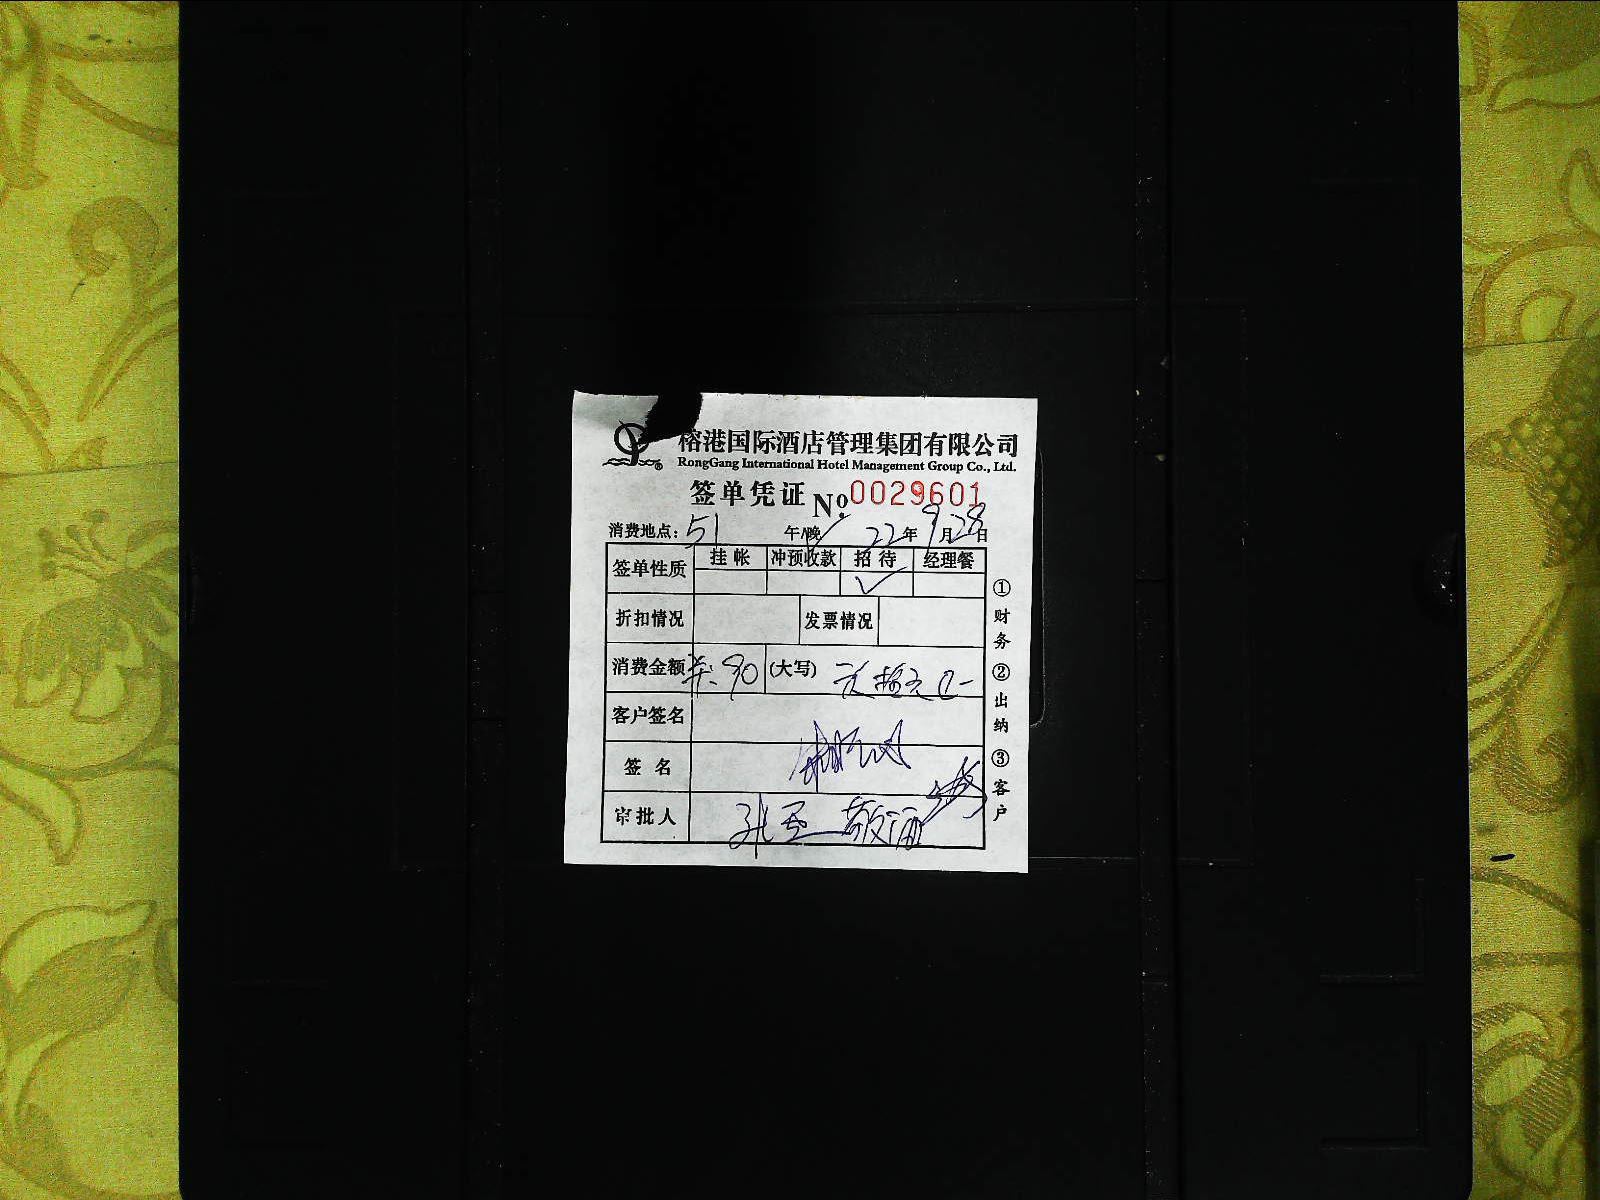 榕港国际酒店管理集团有限公司
RongGang International Hotel Management Group Co., Ltd.
签单凭证 No. 0029601
消费地点: 51 午/晚 ✓ 22年9月28日
签单性质 挂帐 冲预收款 招待 经理餐
✓
折扣情况 发票情况
消费金额 90 (大写) 拾元正
客户签名
签名
审批人
①财务 ②出纳 ③客户